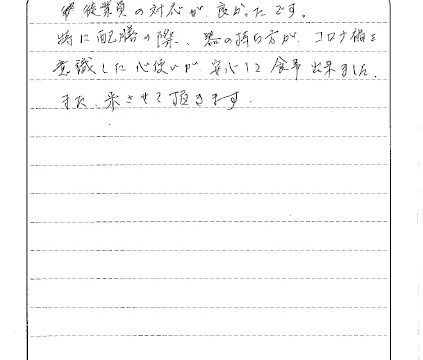 従業員の対応が良かったです。
特に配膳の際、器の持ち方が、コロナ禍を
意識した心使いが、安心して食事出来ました。
また、来させて頂きます。